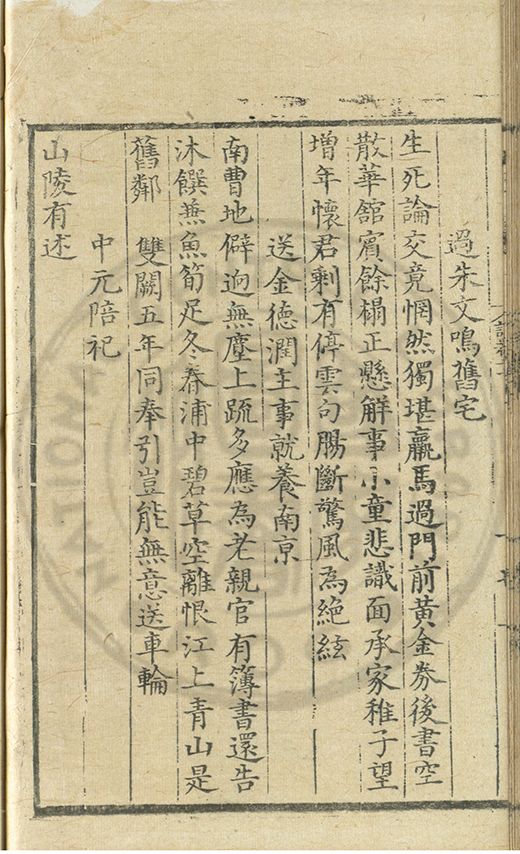 過朱文鳴舊宅
生死論交竟惘然獨堪羸馬過門前黃金券後書空
散華館賓餘榻正懸解事小童悲識面承家稚子望
增年懷君剩有停雲句腸斷驚風為絕絃
送金德潤主事就養南京
南曹地僻逈無塵上疏多應為老親官有簿書還告
沐饌兼魚筍足冬春浦中碧草空離恨江上青山是
舊鄰 雙闕五年同奉引豈能無意送車輪
中元陪祀
山陵有述